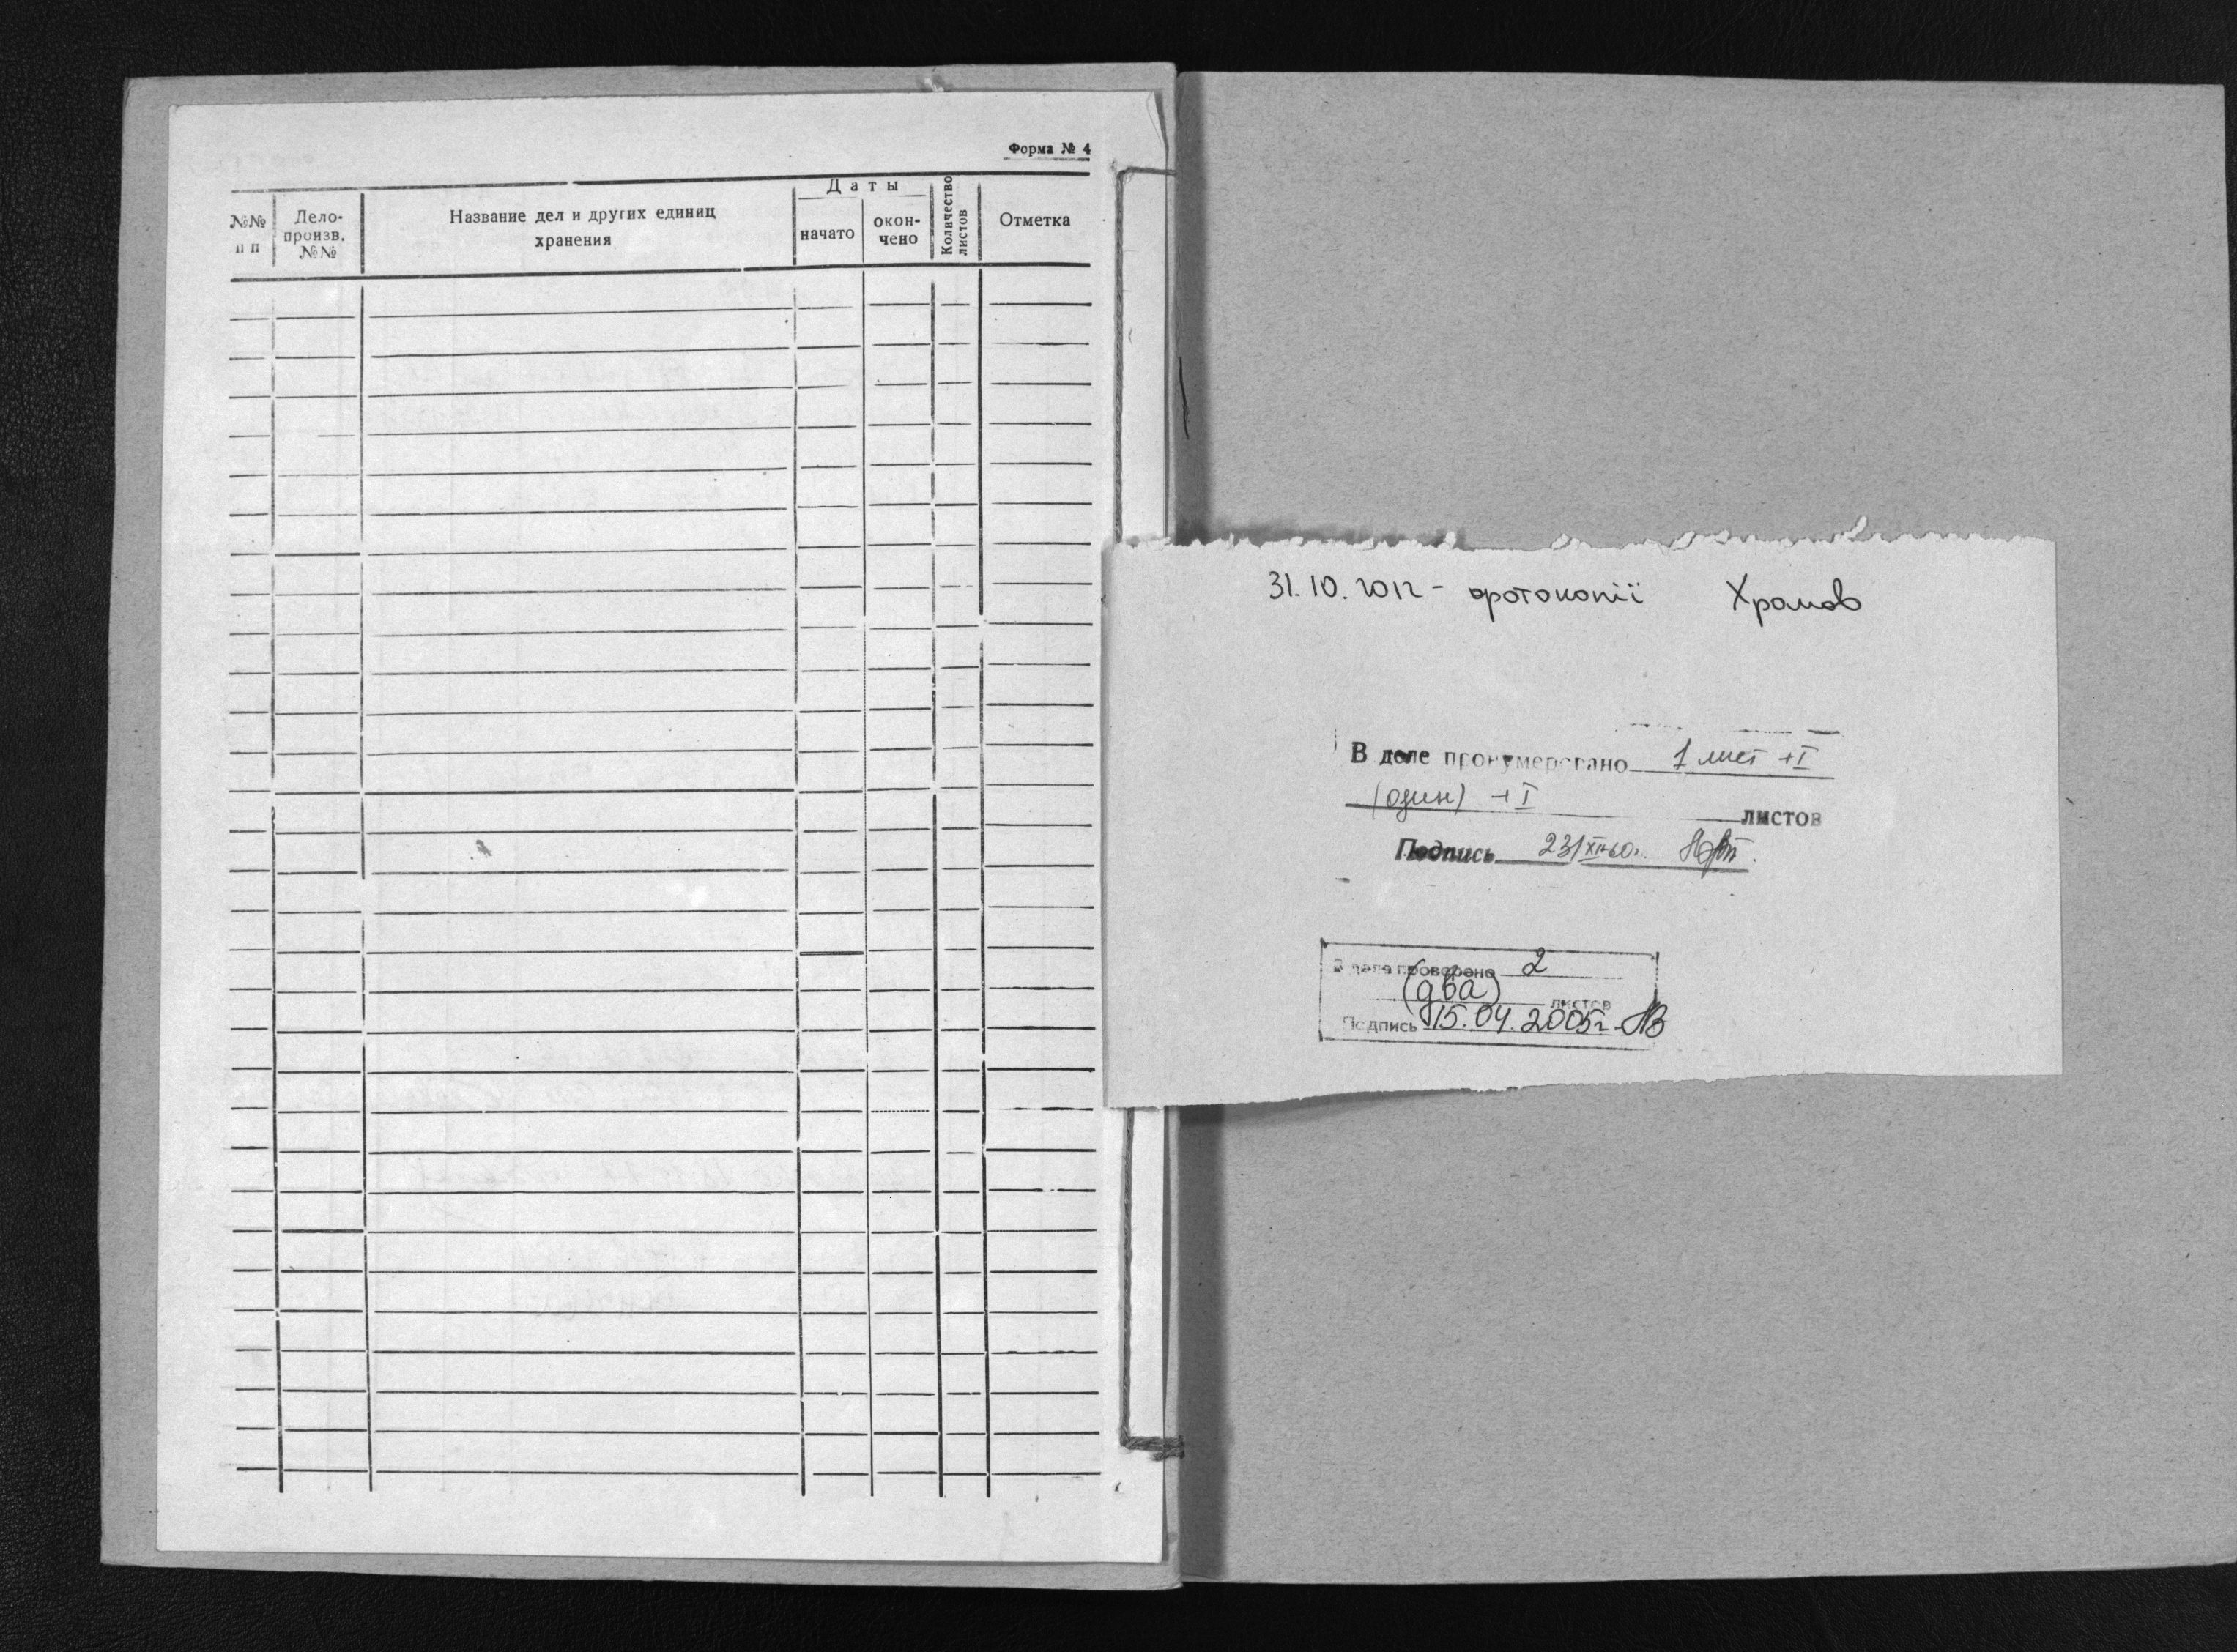 Форма № 4
№№ п п
Дело-произв. №№
Название дел и других единиц
хранения
Даты
начато
окон-
чено
Количество листов
Отметка
31.10.2012 - фотокопії Храмов
В деле пронумеровано 1 лист + I
(один) + I листов
Подпись 23/XII-60г.
В деле проверено 2
(два) листов
Подпись 15.04.2005г.